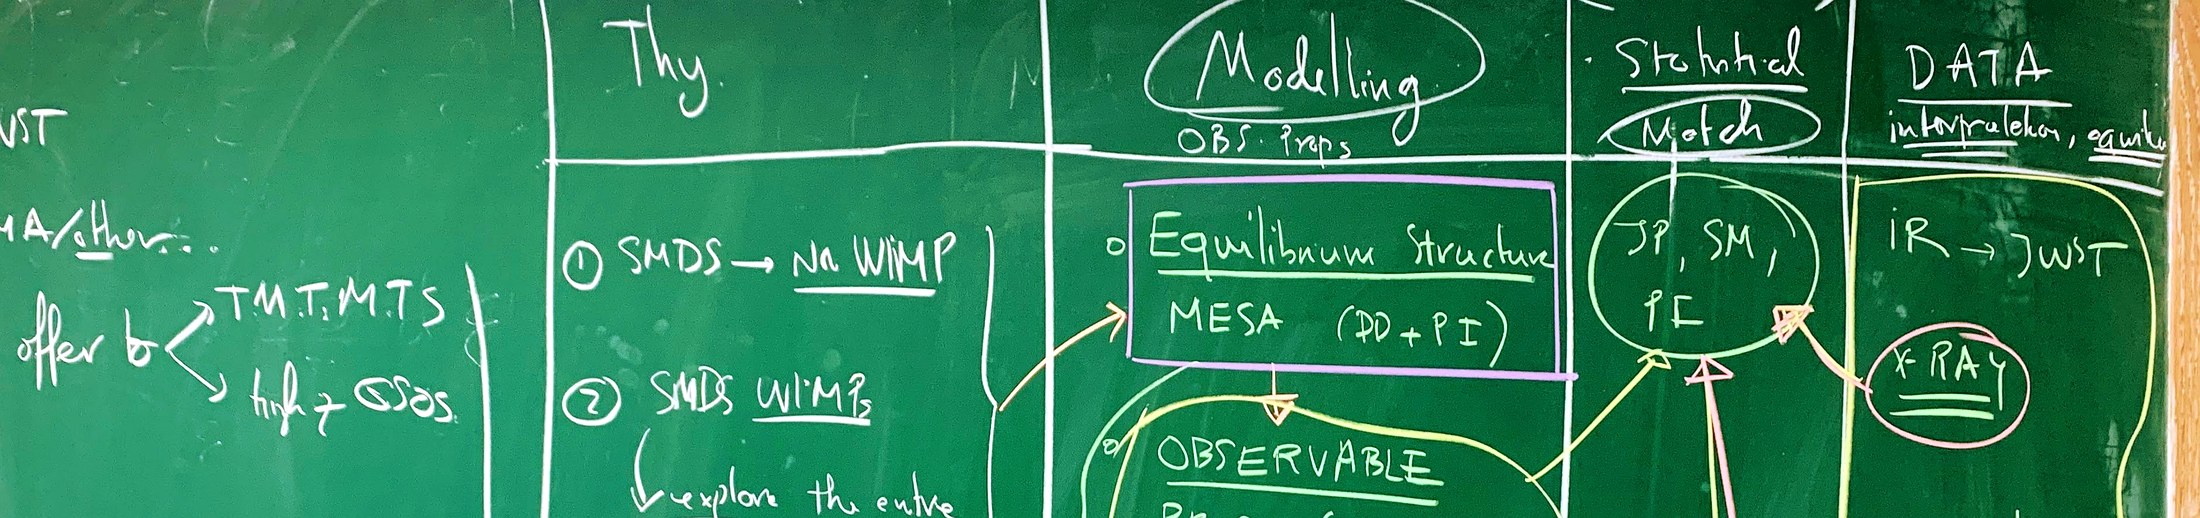 Thy.
Modelling
OBS. Props
Statistical
Match
DATA
JWST
MA/other...
offer to
T.M.T.M.T.S
high z QSOs.
① SMDS → No WIMP
② SMDS WIMPs
explore the entire
Equilibrium Structure
MESA (DD + PI)
OBSERVABLE
JP, SM,
PE
iR → JWST
X-RAY